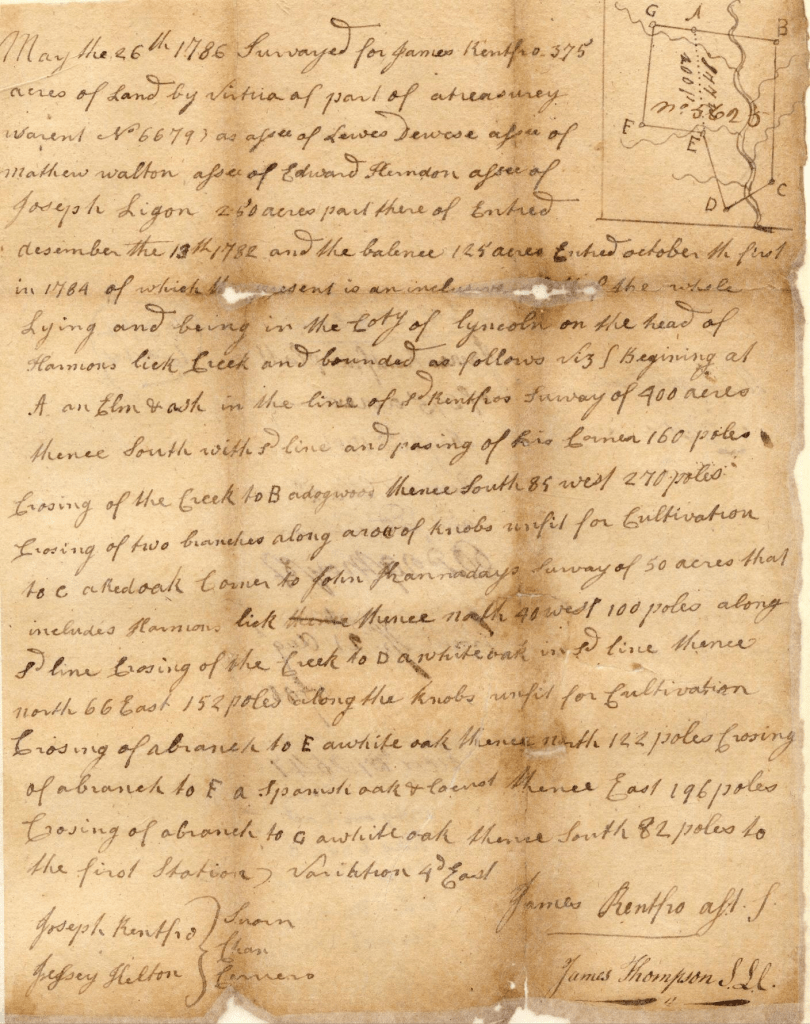 May the 26th 1786 Surwayed for James Rentfro 375
acres of Land by Virtia of part of atreasurey
warent No 6679) as assee of Lewes Dewese assee of
Mathew walton assee of Edward Herndon assee of
Joseph Ligon 250 acres part there of Entred
desember the 13th 1782 and the balence 125 acres Entred october th first
in 1784 of which is an the whole
Lying and being in the Coty of lyncoln on the head of
Harmons lick Creek and bounded as follows viz Begining at
A an Elm & ash in the line of sd Rentfros Surway of 400 acres
thence South with sd line and pasing of his Corner 160 poles
Crosing of the Creek to B adogwood thence South 85 west 270 poles
Crosing of two branches along arow of knobs unfit for Cultivation
to C aRedoak Corner to John Kannadays Surway of 50 acres that
includes Harmons lick thence north 40 west 100 poles along
sd line Crosing of the Creek to D awhite oak in sd line thence
north 66 East 152 poles along the knobs unfit for Cultivation
Crosing of abranch to E awhite oak thence north 122 poles Crosing
of abranch to F a Spanish oak & locust thence East 196 poles
Crosing of abranch to G awhite oak thence South 82 poles to
the first Station) Varition 4d East
James Rentfro asst S
Joseph Rentfro Suorn
Chan
Jessey Helton Cerrers
James Thompson S.L.C.
G
A
B
200 P
no 5.862
F
E
C
D